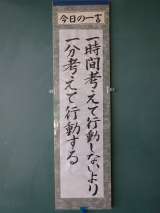 今日の一言
一時間考えて行動しないより
一分考えて行動する